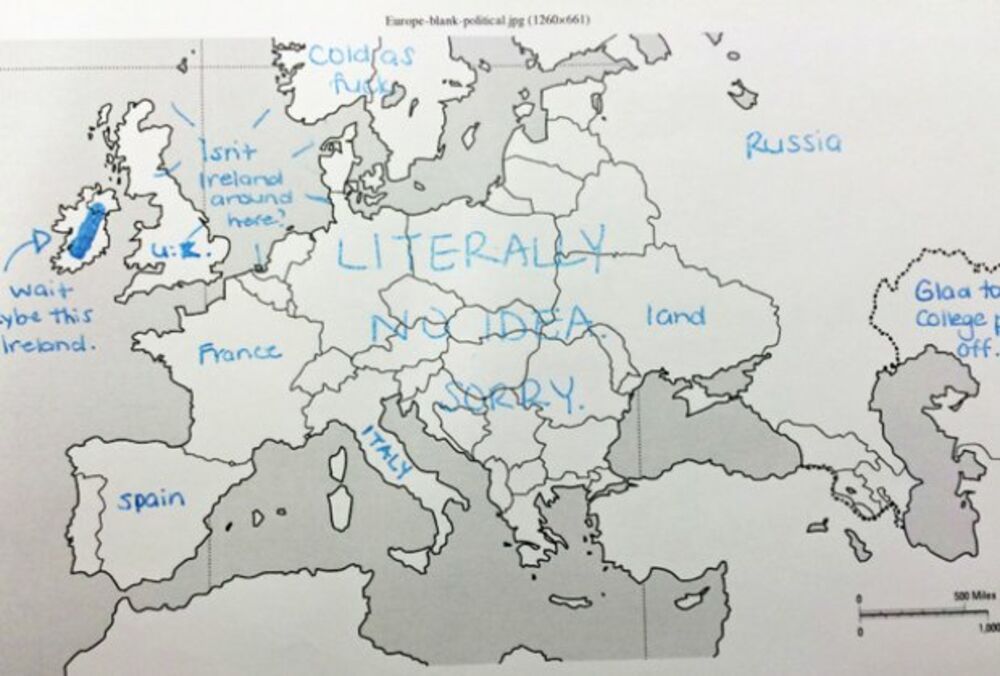 Europe-blank-political.jpg (1260×661)
Cold as
fuck
Russia
Isn't
Ireland
around
here?
U.K.
wait
ybe this
Ireland.
LITERALLY
NO IDEA.
SORRY.
land
Glad to
College p
off.
France
ITALY
spain
0
500 Miles
0
1,000